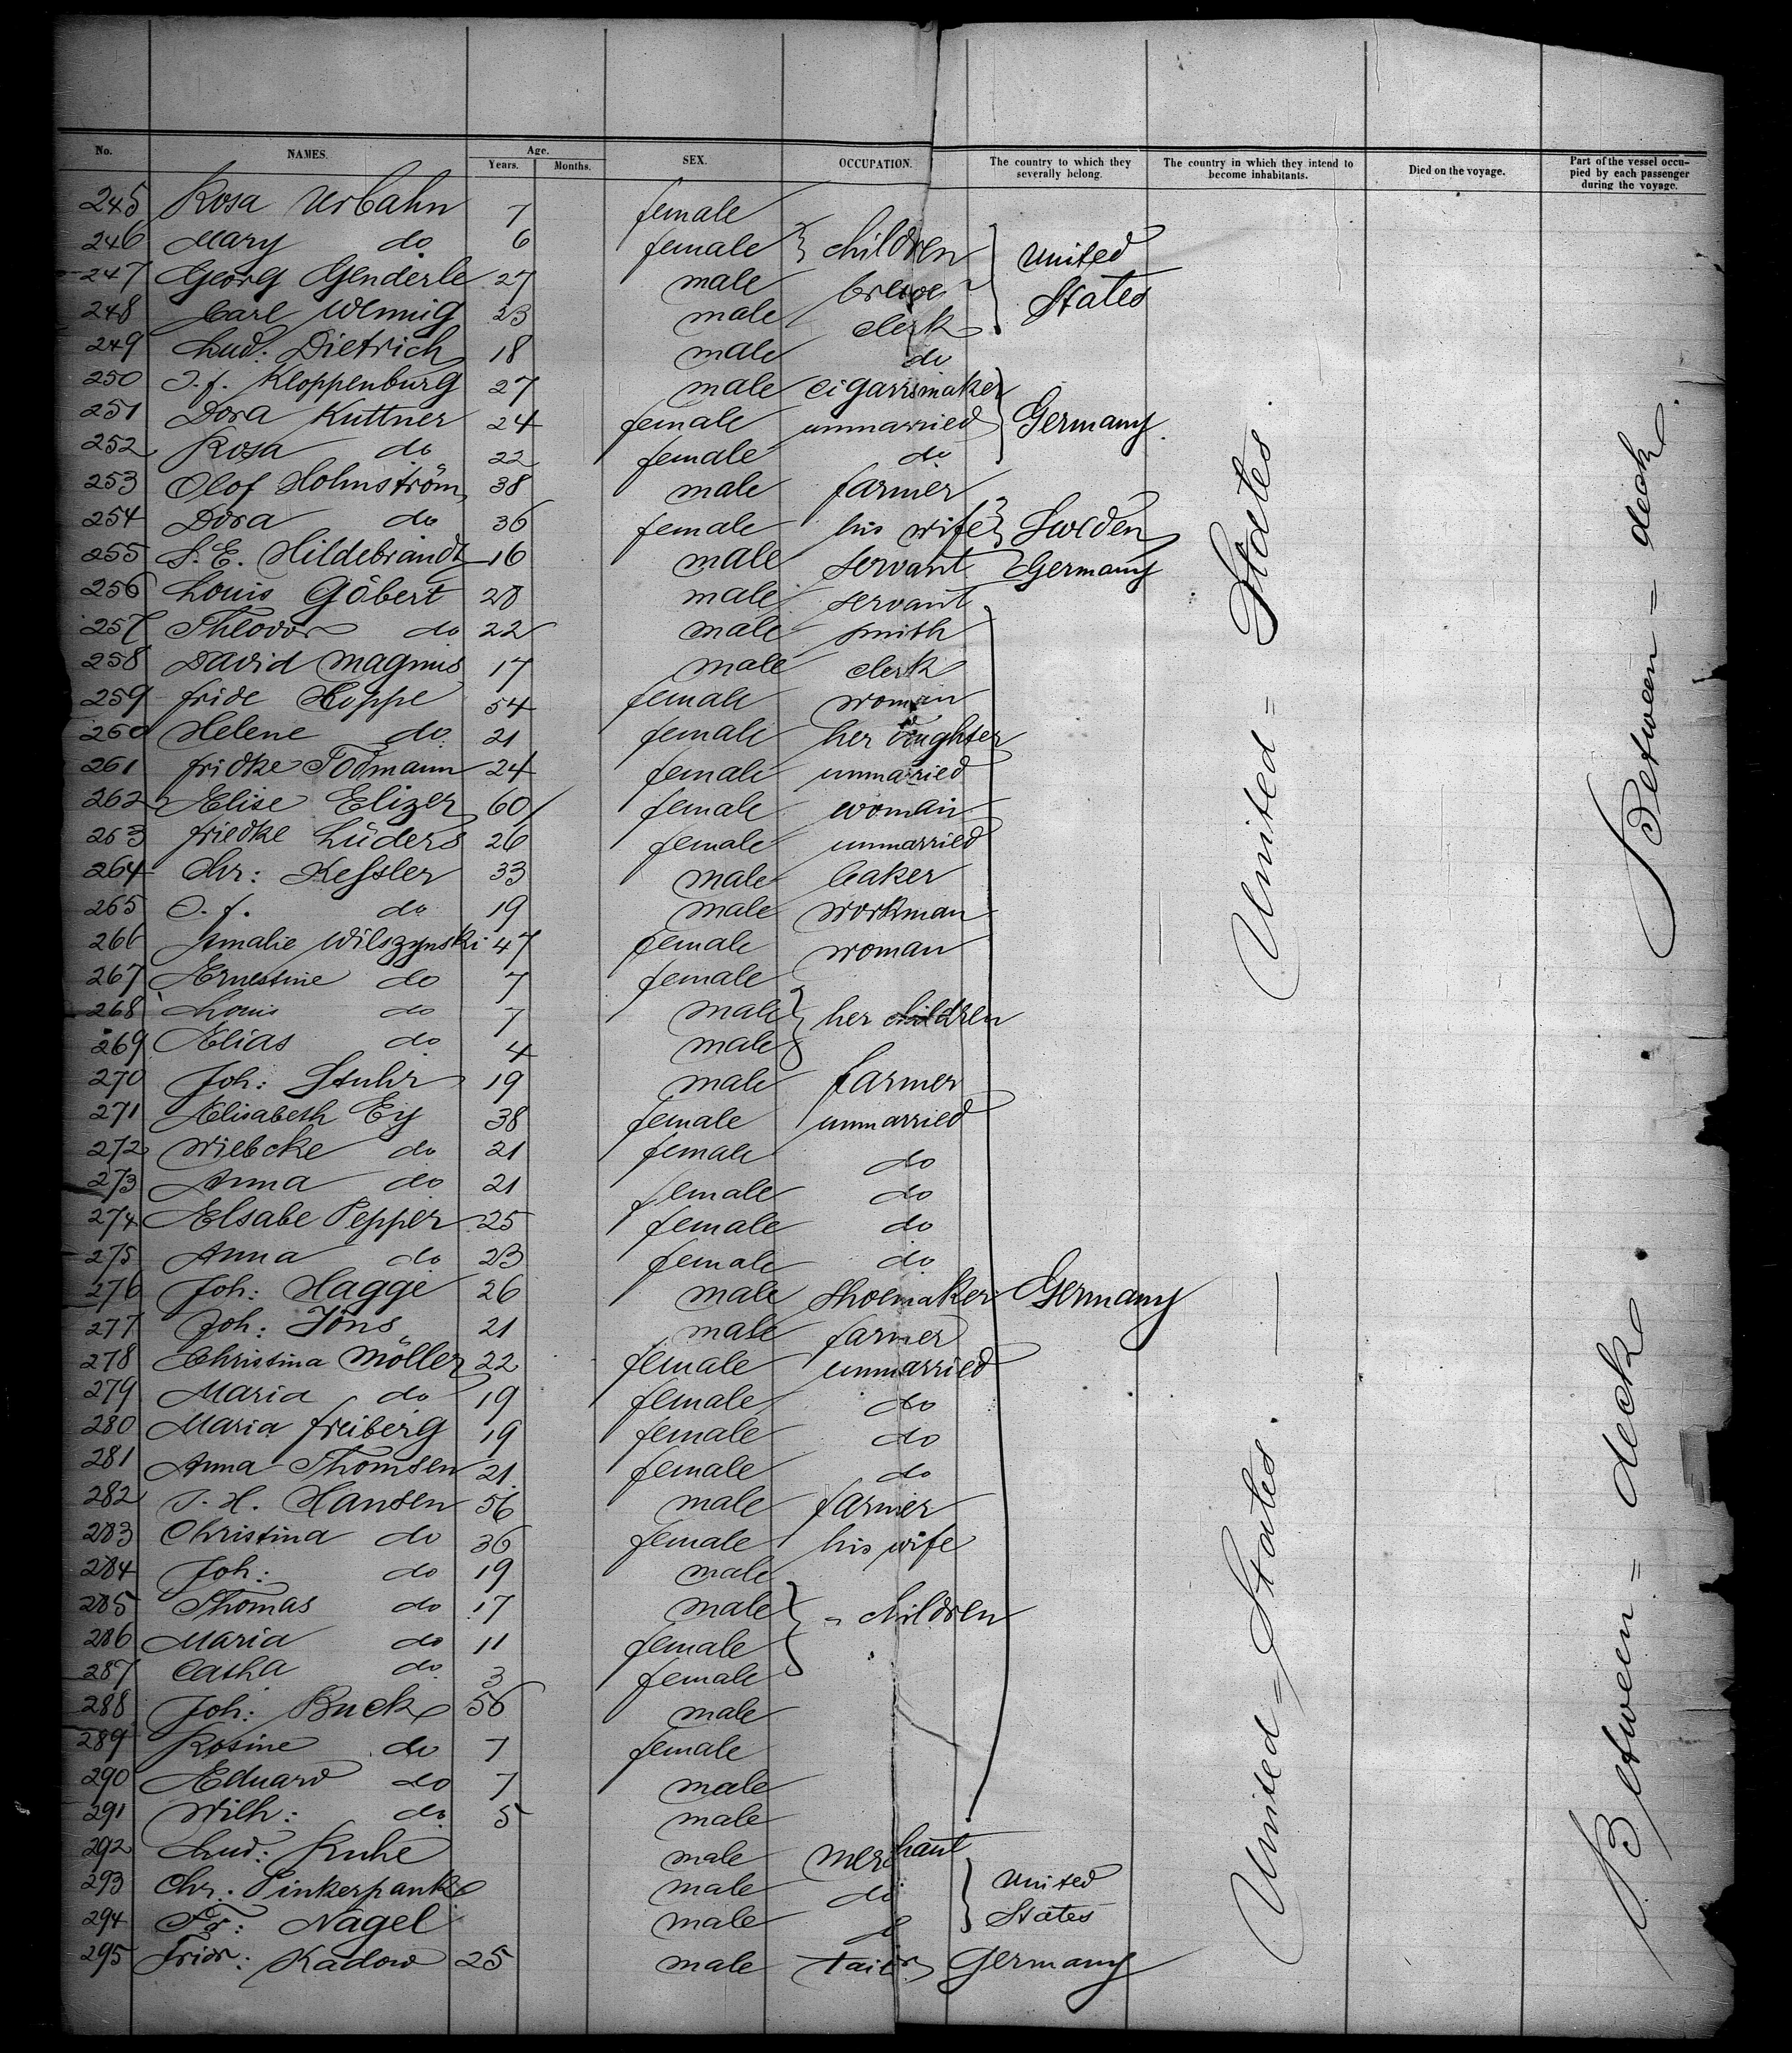 No. NAMES. Age. Years. Months. SEX. OCCUPATION. The country to which they severally belong. The country in which they intend to become inhabitants. Died on the voyage. Part of the vessel occupied by each passenger during the voyage.
245 Rosa Urbahn 7 female
246 Mary do 6 female } children
247 Georg Genderle 27 male United
248 Carl Wennig 23 male clerk States
249 Lud: Dietrich 18 male do
250 J. f. Kloppenburg 27 male cigarrsmaker
251 Dora Kuttner 24 female unmarried } Germany
252 Rosa do 22 female do
253 Olof Holmström 38 male farmer
254 Dora do 36 female his wife } Sweden
255 S. E. Hildebrandt 16 male servant Germany
256 Louis Göbert 28 male servant
257 Theodor do 22 male smith
258 David Magnus 17 male clerk
259 fride Hoppe 54 female woman
260 Helene do 21 female her daughter
261 fridke Todmann 24 female unmarried
262 Elise Elizer 60 female woman
263 friedke Lüders 26 female unmarried
264 Chr: Kessler 33 male baker
265 C. f. do 19 male workman
266 Amalie Wilszynski 47 female woman
267 Ernestine do 7 female
268 Louis do 7 male } her children
269 Elias do 4 male
270 Joh: Stuhr 19 male farmer
271 Elisabeth Ey 38 female unmarried
272 Wiebcke do 21 female do
273 Anna do 21 female do
274 Elsabe Pepper 25 female do
275 Anna do 23 female do
276 Joh: Hagge 26 male shoemaker Germany
277 Joh: Jöns 21 male farmer
278 Christina Möller 22 female unmarried
279 Maria do 19 female do
280 Maria freiberg 19 female do
281 Anna Thomsen 21 female do
282 J. H. Hansen 56 male farmer
283 Christina do 36 female his wife
284 Joh: do 19 male
285 Thomas do 17 male } " children
286 Maria do 11 female
287 Catha do 3 female
288 Joh: Buck 56 male
289 Rosine do 7 female
290 Eduard do 7 male
291 Wilh: do 5 male
292 Lud: Ruhe male merchant
293 Chr: Pinkerpank male do } United
294 Fr: Nagel male States
295 Fridr: Kadow 25 male Germany
United = States.
United = States. —
Between = deck
Between = deck